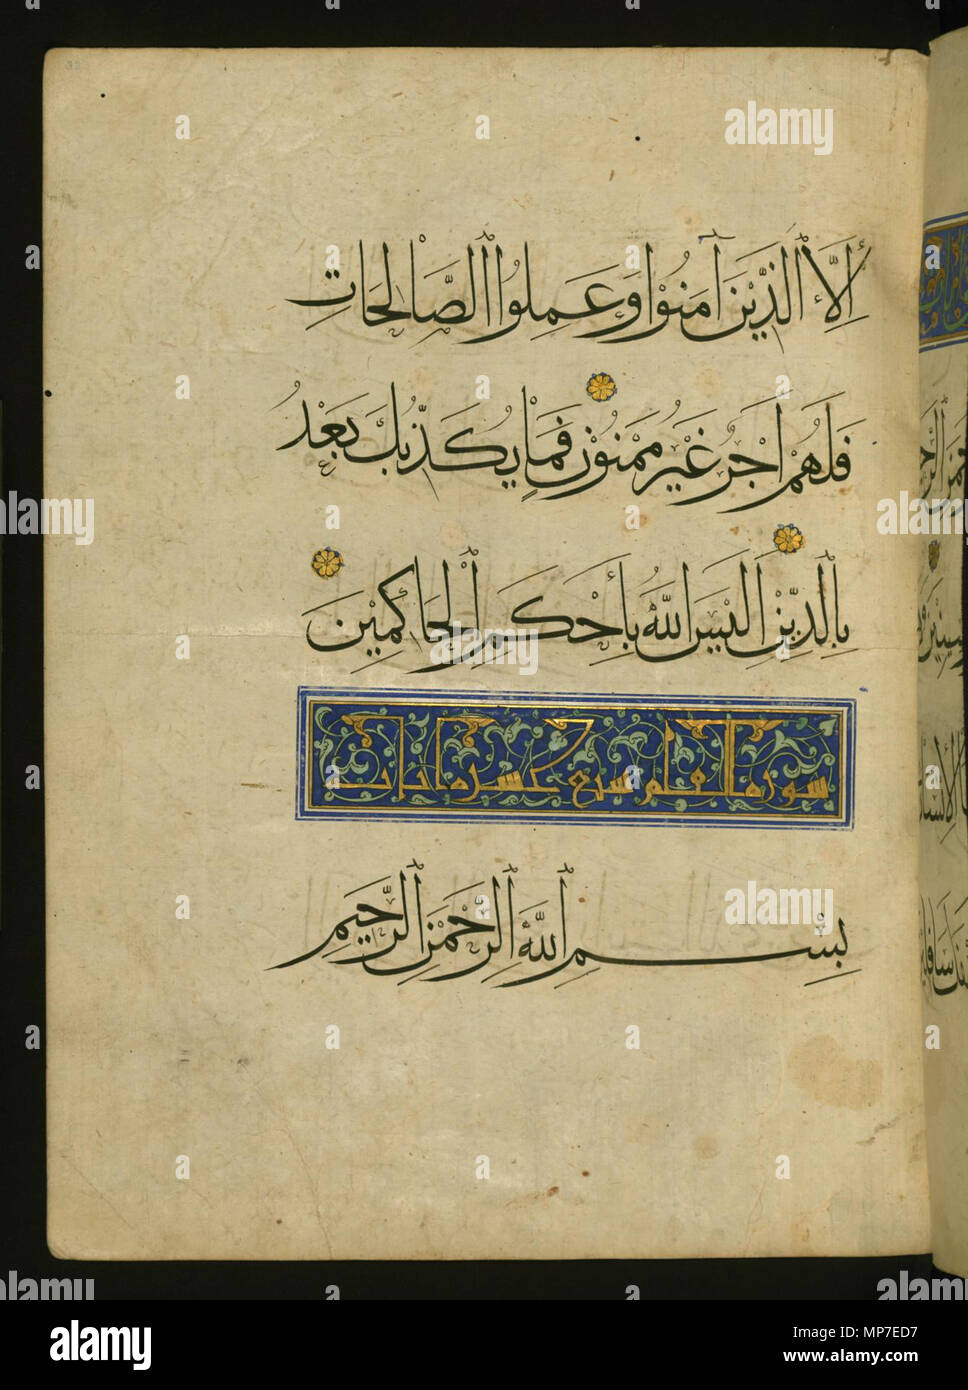 إِلَّا الَّذِينَ آمَنُوا وَعَمِلُوا الصَّالِحَاتِ
فَلَهُمْ أَجْرٌ غَيْرُ مَمْنُونٍ فَمَا يُكَذِّبُكَ بَعْدُ
بِالدِّينِ أَلَيْسَ اللَّهُ بِأَحْكَمِ الْحَاكِمِينَ
سورة القلم تسع عشرة ايات
بِسْمِ اللَّهِ الرَّحْمَنِ الرَّحِيمِ
alamy
alamy
alamy
alamy
alamy
Image ID: MP7ED7
www.alamy.com